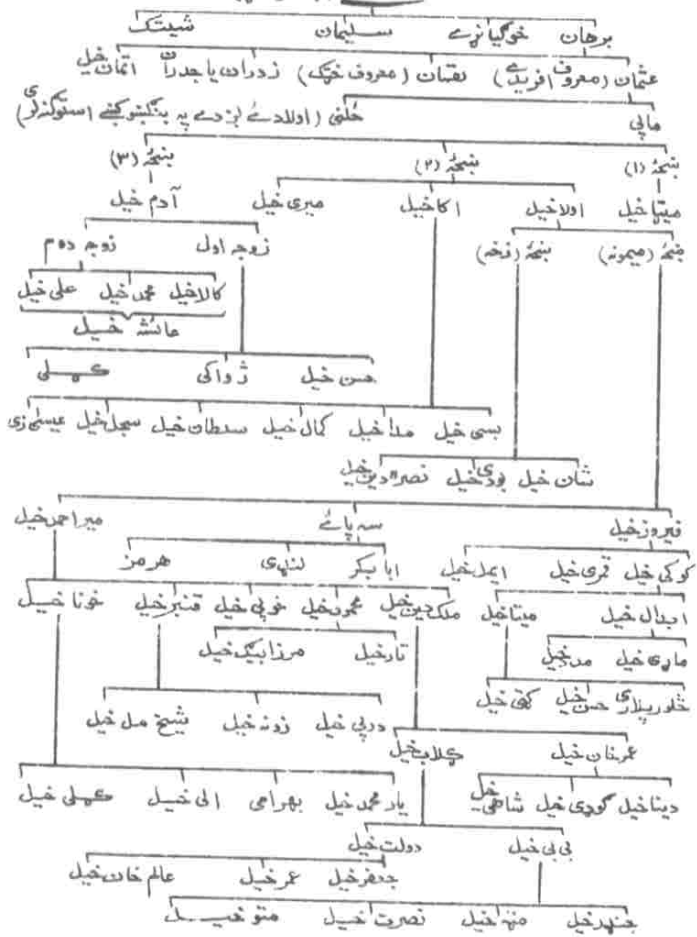 برهان خوګیاڼي سلیمان شیتک
عثمان (معروف افریدے) لقمان (معروف خټک) زدران یا جدران اتمان خیل
مانی څلنی (اولادے لږ دے په بنګښو کښے استوګنه لری)
ښځۀ (۱) ښځۀ (۲) ښځۀ (۳)
میټا خیل اولا خیل اکا خیل میری خیل آدم خیل
ښځۀ (میمونه) ښځۀ (زخه) زوجه اول زوجه دوم
کالا خیل محمد خیل علی خیل
عائشه خیل
حسن خیل ژواکی
بسی خیل مدا خیل کمال خیل سلطان خیل سجل خیل عیسی زی
شان خیل بودی خیل نصرالدین خیل
فیروز خیل سه پائے میر احمد خیل
کوکی خیل قمری خیل ایمل خیل ابا بکر لنډی هرمز
ابدال خیل میتا خیل ملک دین خیل محمود خیل خوپی خیل قنبر خیل خونا خیل
ماډی خیل مد خیل تار خیل مرزا بیګ خیل
حسن خیل کټی خیل درپی خیل زونه خیل شیخ مل خیل
عمر خان خیل ګلاب خیل
دینا خیل ګوډی خیل شاهی خیل یار محمد خیل بهرامی الی خیل کهلی خیل
بی بی خیل دولت خیل
جعفر خیل عمر خیل عالم خان خیل
جنډر خیل منها خیل نصرت خیل متو خیل